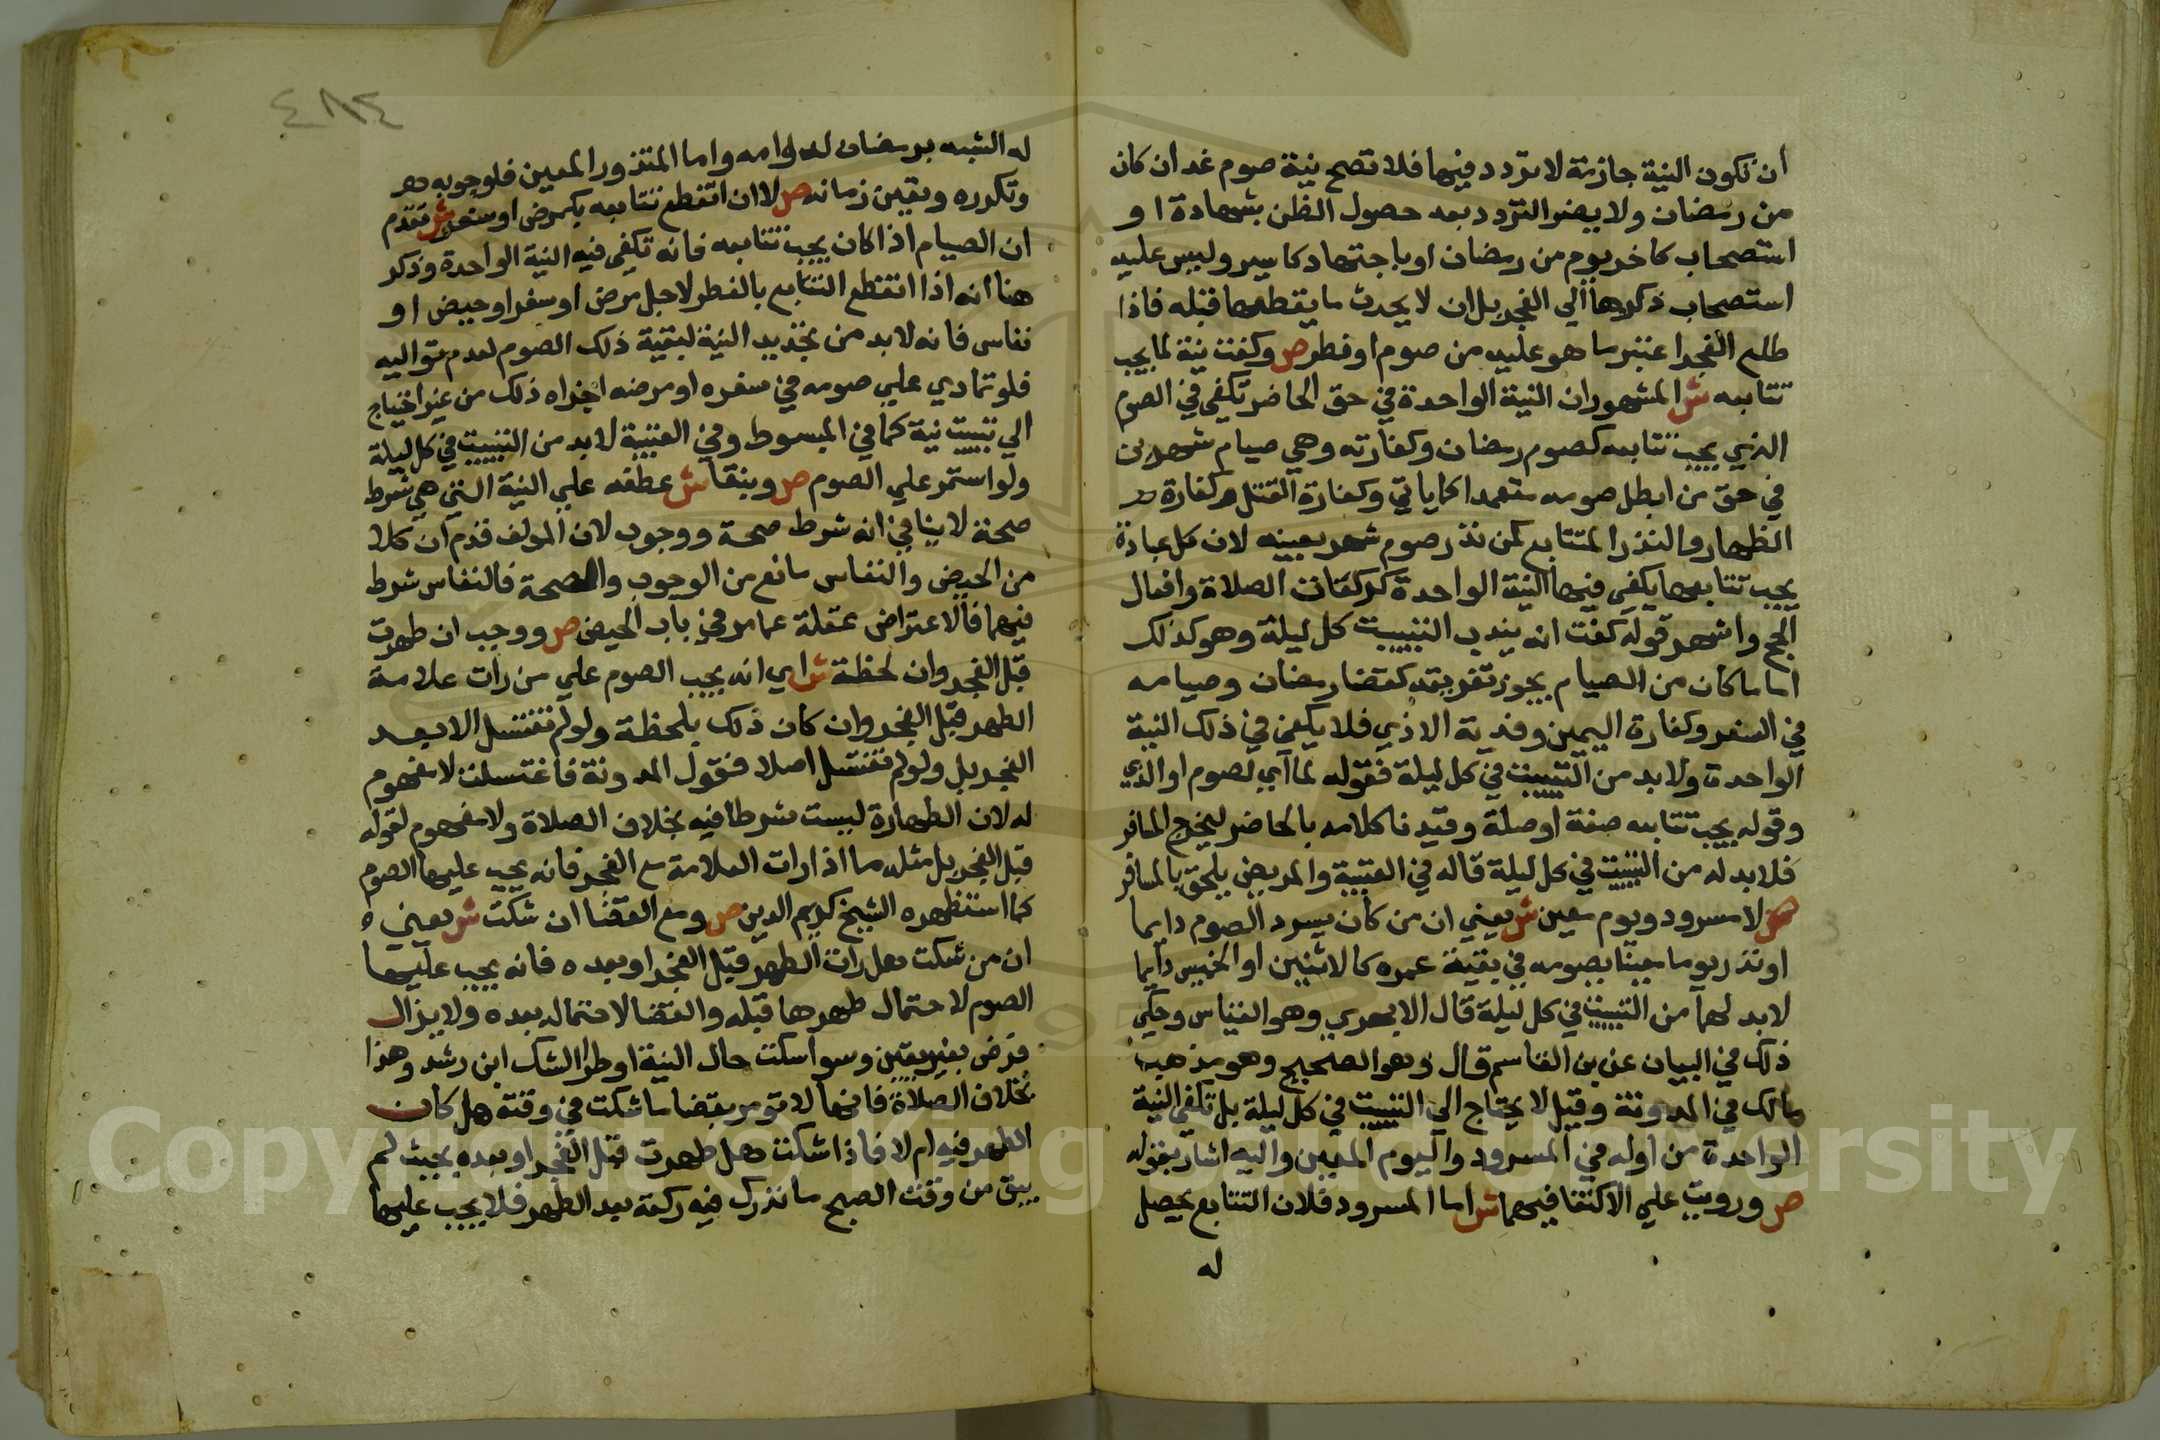 ان تكون النية جازمة لا تردد فيها فلا تصح نية صوم غد ان كان
من رمضان ولا يضر التردد بعد حصول الظن بشهادة او
استصحاب كاخر يوم من رمضان او باجتهاد كاسير وليس عليه
استصحاب ذكرها الي الفجر بل ان لا يحدث ما يقطعها قبله فاذا
طلع الفجر اعتبر ما هو عليه من صوم او فطر ص وكفت نية لما يجب
تتابعه ش المشهور ان النية الواحدة في حق الحاضر تكفي في الصوم
الذي يجب تتابعه كصوم رمضان وكفارته وهي صيام شهرين
في حق من ابطل صومه متعمدا كما ياتي وكفارة القتل وكفارة
الظهار والنذر المتتابع كمن نذر صوم شهر بعينه لان كل عبادة
يجب تتابعها يكفي فيها النية الواحدة كركعات الصلاة وافعال
الحج واشعر قوله كفت انه يندب التبييت كل ليلة وهو كذلك
اما ما كان من الصيام يجوز تفريقه كقضا رمضان وصيامه
في السفر وكفارة اليمين وفدية الاذي فلا يكفي في ذلك النية
الواحدة ولا بد من التبييت في كل ليلة فقوله لما اي لصوم او الذي
وقوله يجب تتابعه صفة او صلة وقيدنا كلامه بالحاضر ليخرج المسافر
فلا بد له من التبييت في كل ليلة قاله في العتبية والمريض يلحق بالمسافر
ص لا مسرود ويوم معين ش يعني ان من كان يسرد الصوم دايما
او نذر يوما معينا يصومه في بقية عمره كالاثنين او الخميس دايما
لا بد لهما من التبييت في كل ليلة قال الابهري وهو القياس وحكي
ذلك في البيان عن بن القاسم قال وهو الصحيح وهو مذهب
مالك في المدونة وقيل لا يحتاج الي التبييت في كل ليلة بل تكفي النية
الواحدة من اوله في المسرود واليوم المعين واليه اشار بقوله
ص ورويت علي الاكتفا فيهما ش اما المسرود فلان التتابع يحصل
له
٤٨٤
له الشبه برمضان لدوامه واما المنذور المعين فلوجوبه
وتكرره وتعين زمانه ص لا ان انقطع تتابعه بكمرض او سفر ش تقدم
ان الصيام اذا كان يجب تتابعه فانه تكفي فيه النية الواحدة وذكر
هنا انه اذا انقطع التتابع بالفطر لاجل مرض او سفر او حيض او
نفاس فانه لا بد من تجديد النية لبقية ذلك الصوم لعدم تواليه
فلو تمادي علي صومه في سفره او مرضه اجزاه ذلك من غير احتياج
الي تبييت نية كما في المبسوط وفي العتبية لا بد من التبييت في كل ليلة
ولو استمر علي الصوم ص وبنقا ش عطفه علي النية التي هي شرط
صحة لا ينافي انه شرط صحة ووجوب لان المولف قدم ان كلا
من الحيض والنفاس مانع من الوجوب والصحة فالنقاس شرط
فيهما فالاعتراض غفلة عما مر في باب الحيض ص ووجب ان طهرت
قبل الفجر وان لحظة ش اي انه يجب الصوم علي من رات علامة
الطهر قبل الفجر وان كان ذلك بلحظة ولو لم تغتسل الا بعد
الفجر بل ولو لم تغتسل اصلا فقول المدونة فاغتسلت لا مفهوم
له لان الطهارة ليست شرطا فيه بخلاف الصلاة ولا مفهوم لقوله
قبل الفجر بل مثله ما اذا رات العلامة مع الفجر فانه يجب عليها الصوم
كما استظهره الشيخ كريم الدين ص ومع القضا ان شكت ش يعني
ان من شكت هل رات الطهر قبل الفجر او بعده فانه يجب عليها
الصوم لاحتمال طهرها قبله والقضا لاحتماله بعده ولا يزال
فرض بغير يقين وسوا شكت حال النية او طرا الشك ابن رشد وهذا
بخلاف الصلاة فانها لا تومر بقضا ما شكت في وقته هل كان
الطهر فيه ام لا فاذا شكت هل طهرت قبل الفجر او بعده بحيث لم
يبق من وقت الصبح ما تدرك فيه ركعة بعد الطهر فلا يجب عليها
Copyright © King Saud University